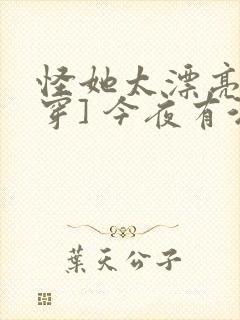 怪她太漂亮
穿] 今夜有
葉天公子